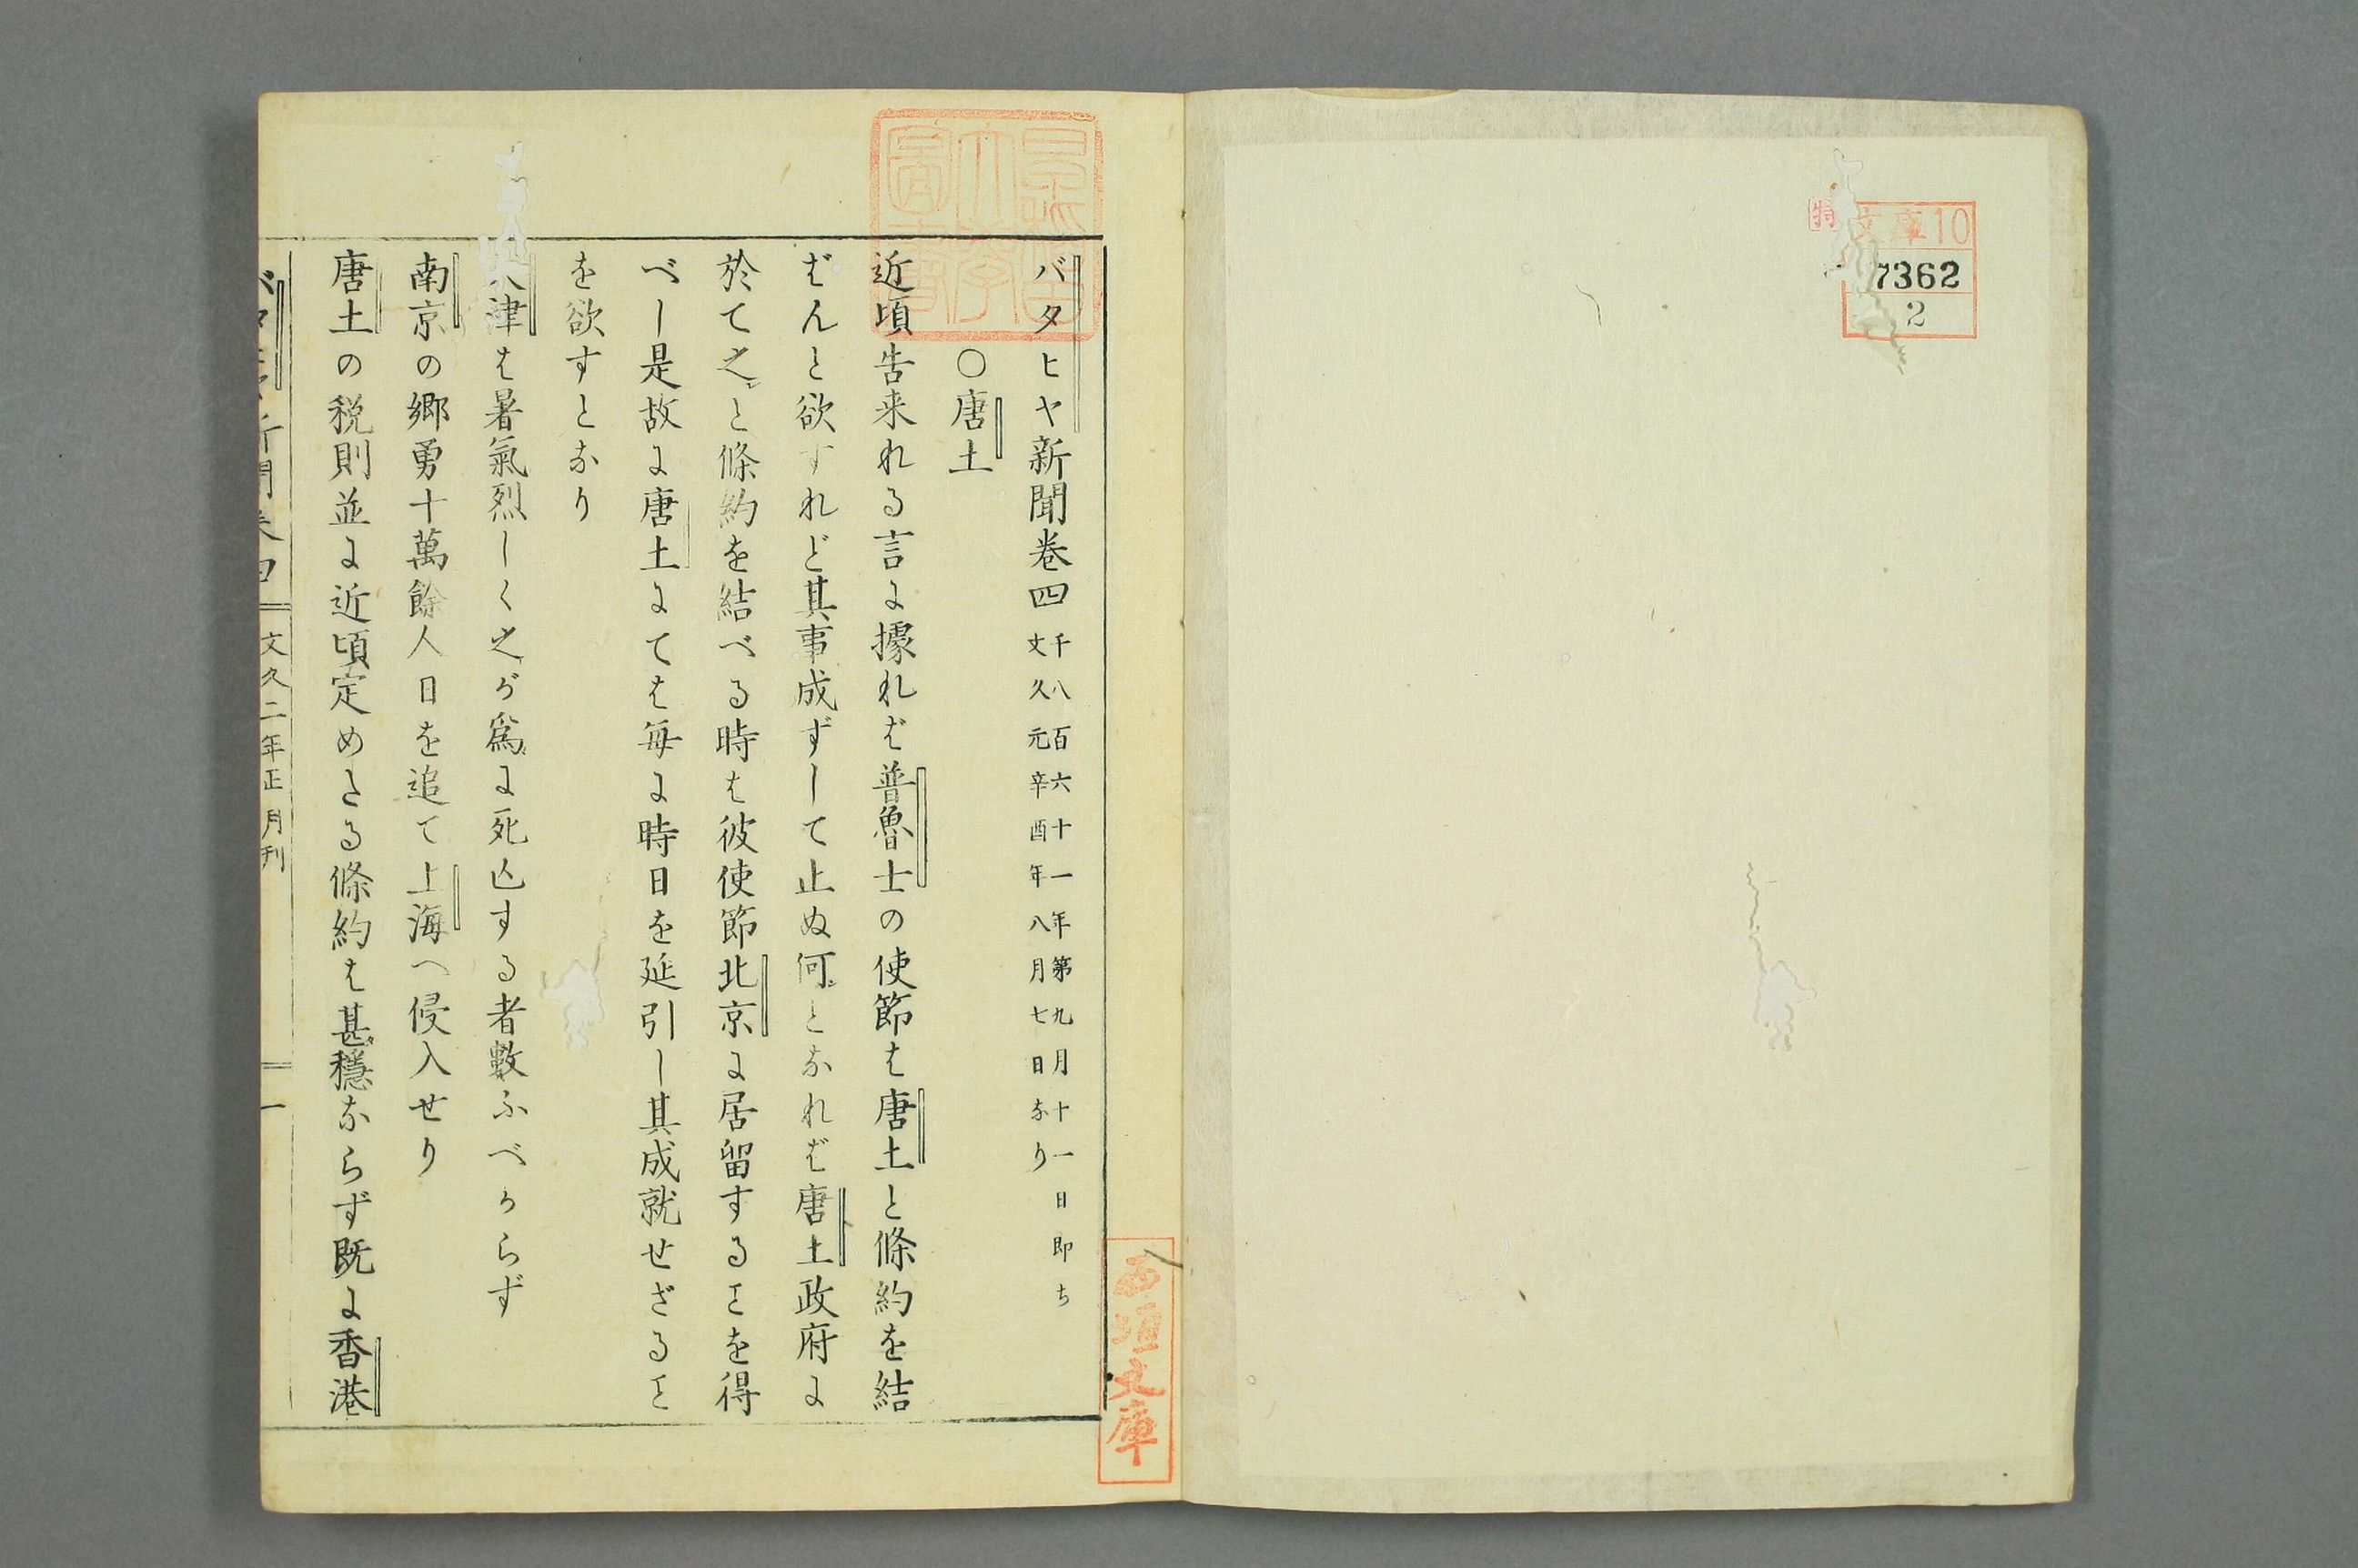 文庫10
7362
2
バタヒヤ新聞卷四
千八百六十一年第九月十一日即ち
文久元辛酉年八月七日なり
○唐土
近頃告来れる言に據れば普魯士の使節は唐土と條約を結
ばんと欲すれど其事成ずして止ぬ何となれば唐土政府に
於て之と條約を結べる時は彼使節北京に居留するヿを得
べし是故に唐土にては毎に時日を延引し其成就せざるヿ
を欲すとなり
津は暑氣烈しく之が爲に死亡する者數ふべからず
南京の郷勇十萬餘人日を追て上海へ侵入せり
唐土の税則並に近頃定めたる條約は甚穩ならず既に香港
文久二年正月刊
一
西垣文庫